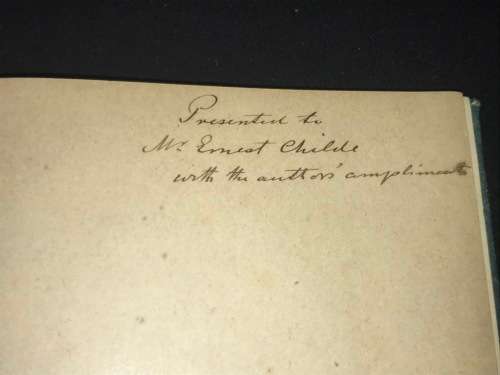 Presented to
Mr. Ernest Childe
with the author's compliments